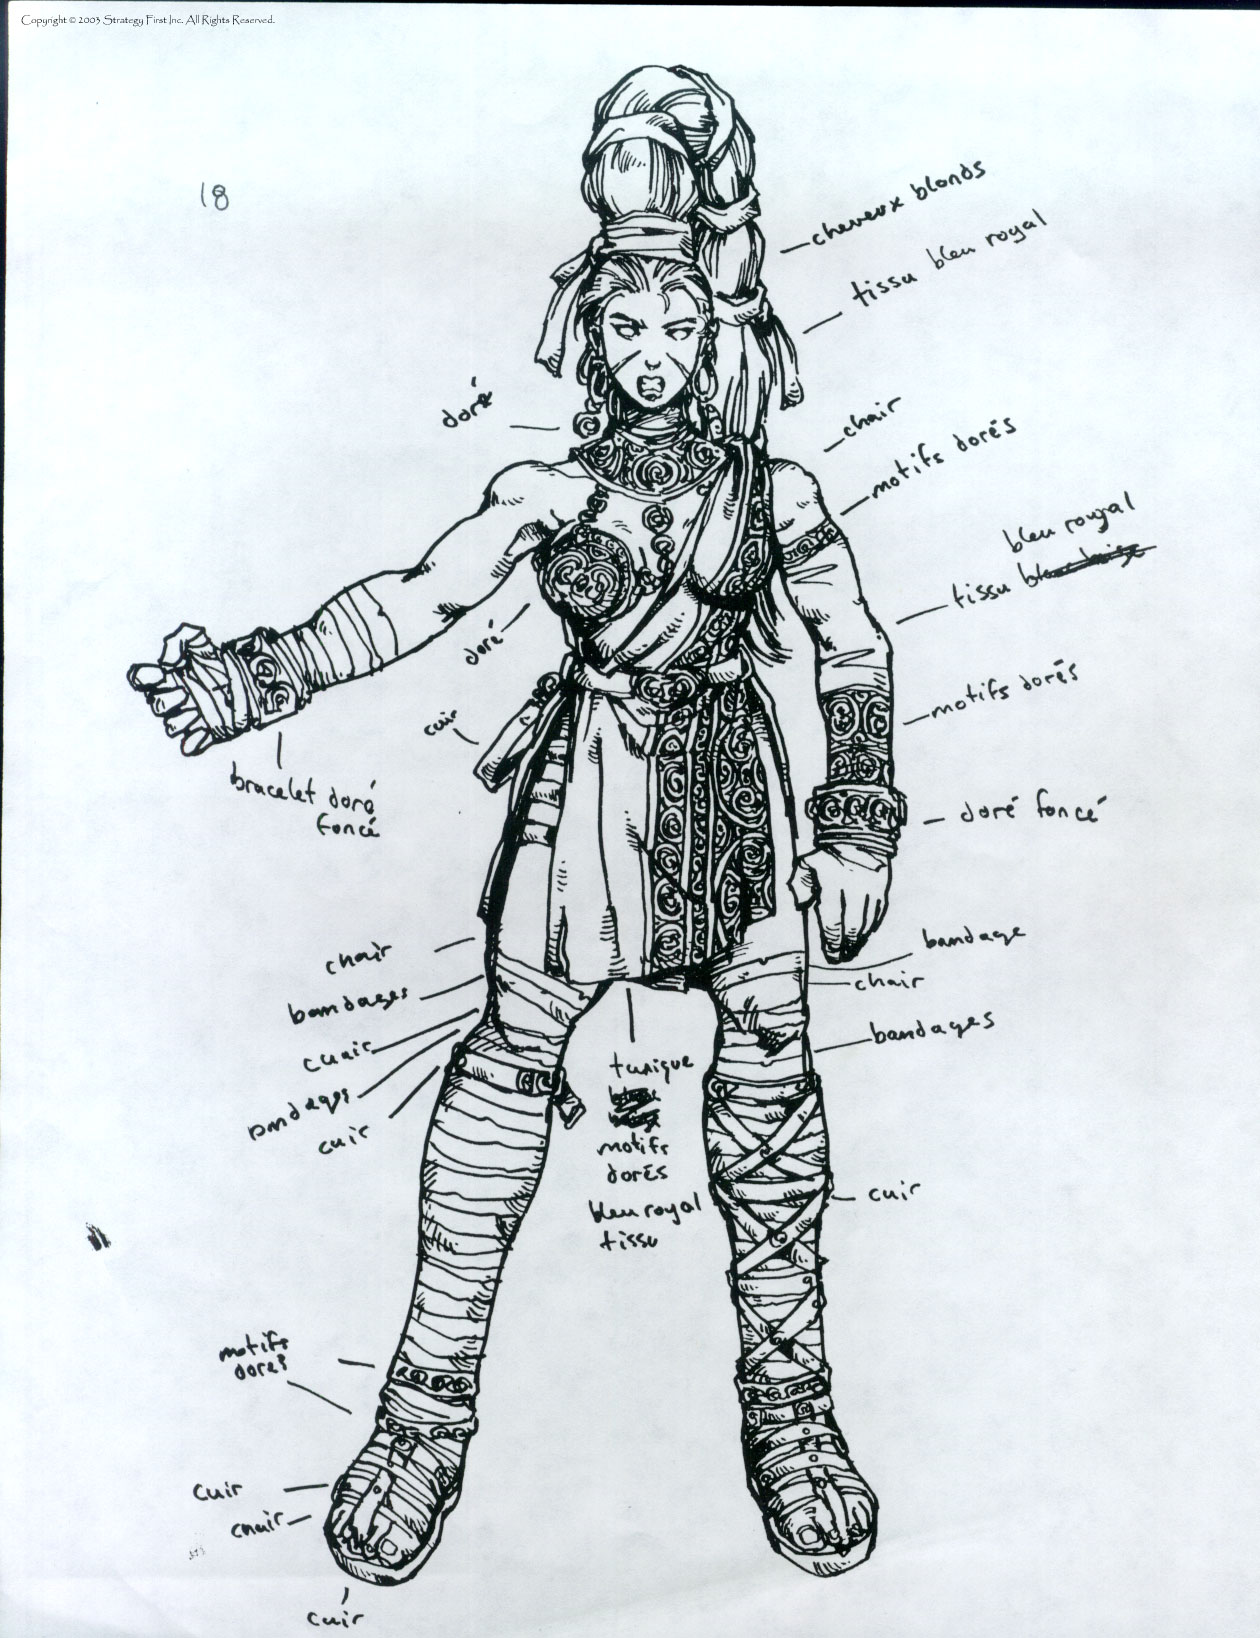 Copyright © 2003 Strategy First Inc. All Rights Reserved.
18
cheveux blonds
tissu bleu royal
doré
chair
motifs dorés
bleu royal
tissu
doré
motifs dorés
cuir
bracelet doré
foncé
doré foncé
bandage
chair
chair
bandages
bandages
chair
bandages
cuir
tunique
motifs
dorés
bleu royal
tissu
cuir
motifs
dorés
cuir
chair
cuir